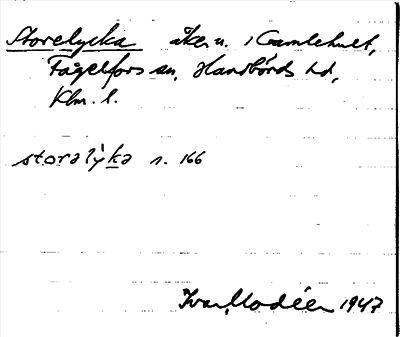 Storelycka åkern. i Gamlehult,
Fågelfors sn, Handbörds hd,
Klm. l.
storalyka s. 166
Ivar Modéer 1947